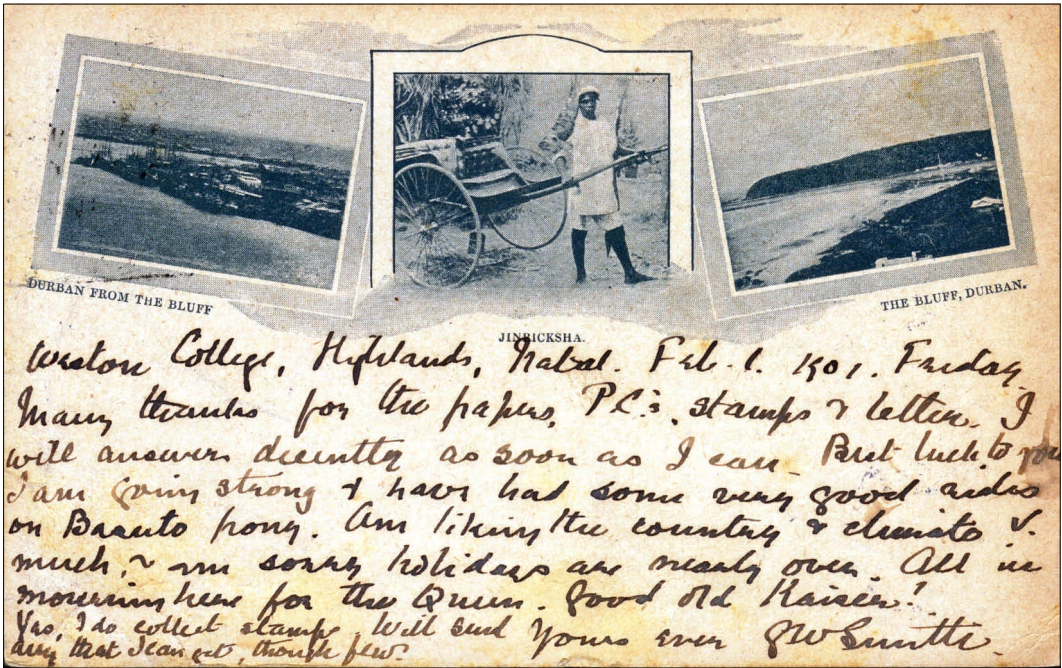 DURBAN FROM THE BLUFF
JINRICKSHA.
THE BLUFF, DURBAN.
Weston College, Highlands, Natal. Feb. 1. 1901. Friday
Many thanks for the papers, P.C.s, stamps & letter. I
will answer decently as soon as I can. Best luck to you
I am going strong & have had some very good rides
on Basuto pony. Am liking the country & climate v.
much, & am sorry holidays are nearly over. All in
mourning here for the Queen. Good old Kaiser!
Yes, I do collect stamps. Will send
any that I can get, though few.
Yours ever